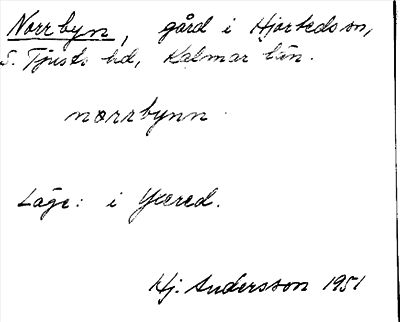 Norrbyn, gård i Hjorteds sn,
S. Tjusts hd, Kalmar län.
norrbynn
Läge: i Yxered.
Hj. Andersson 1951